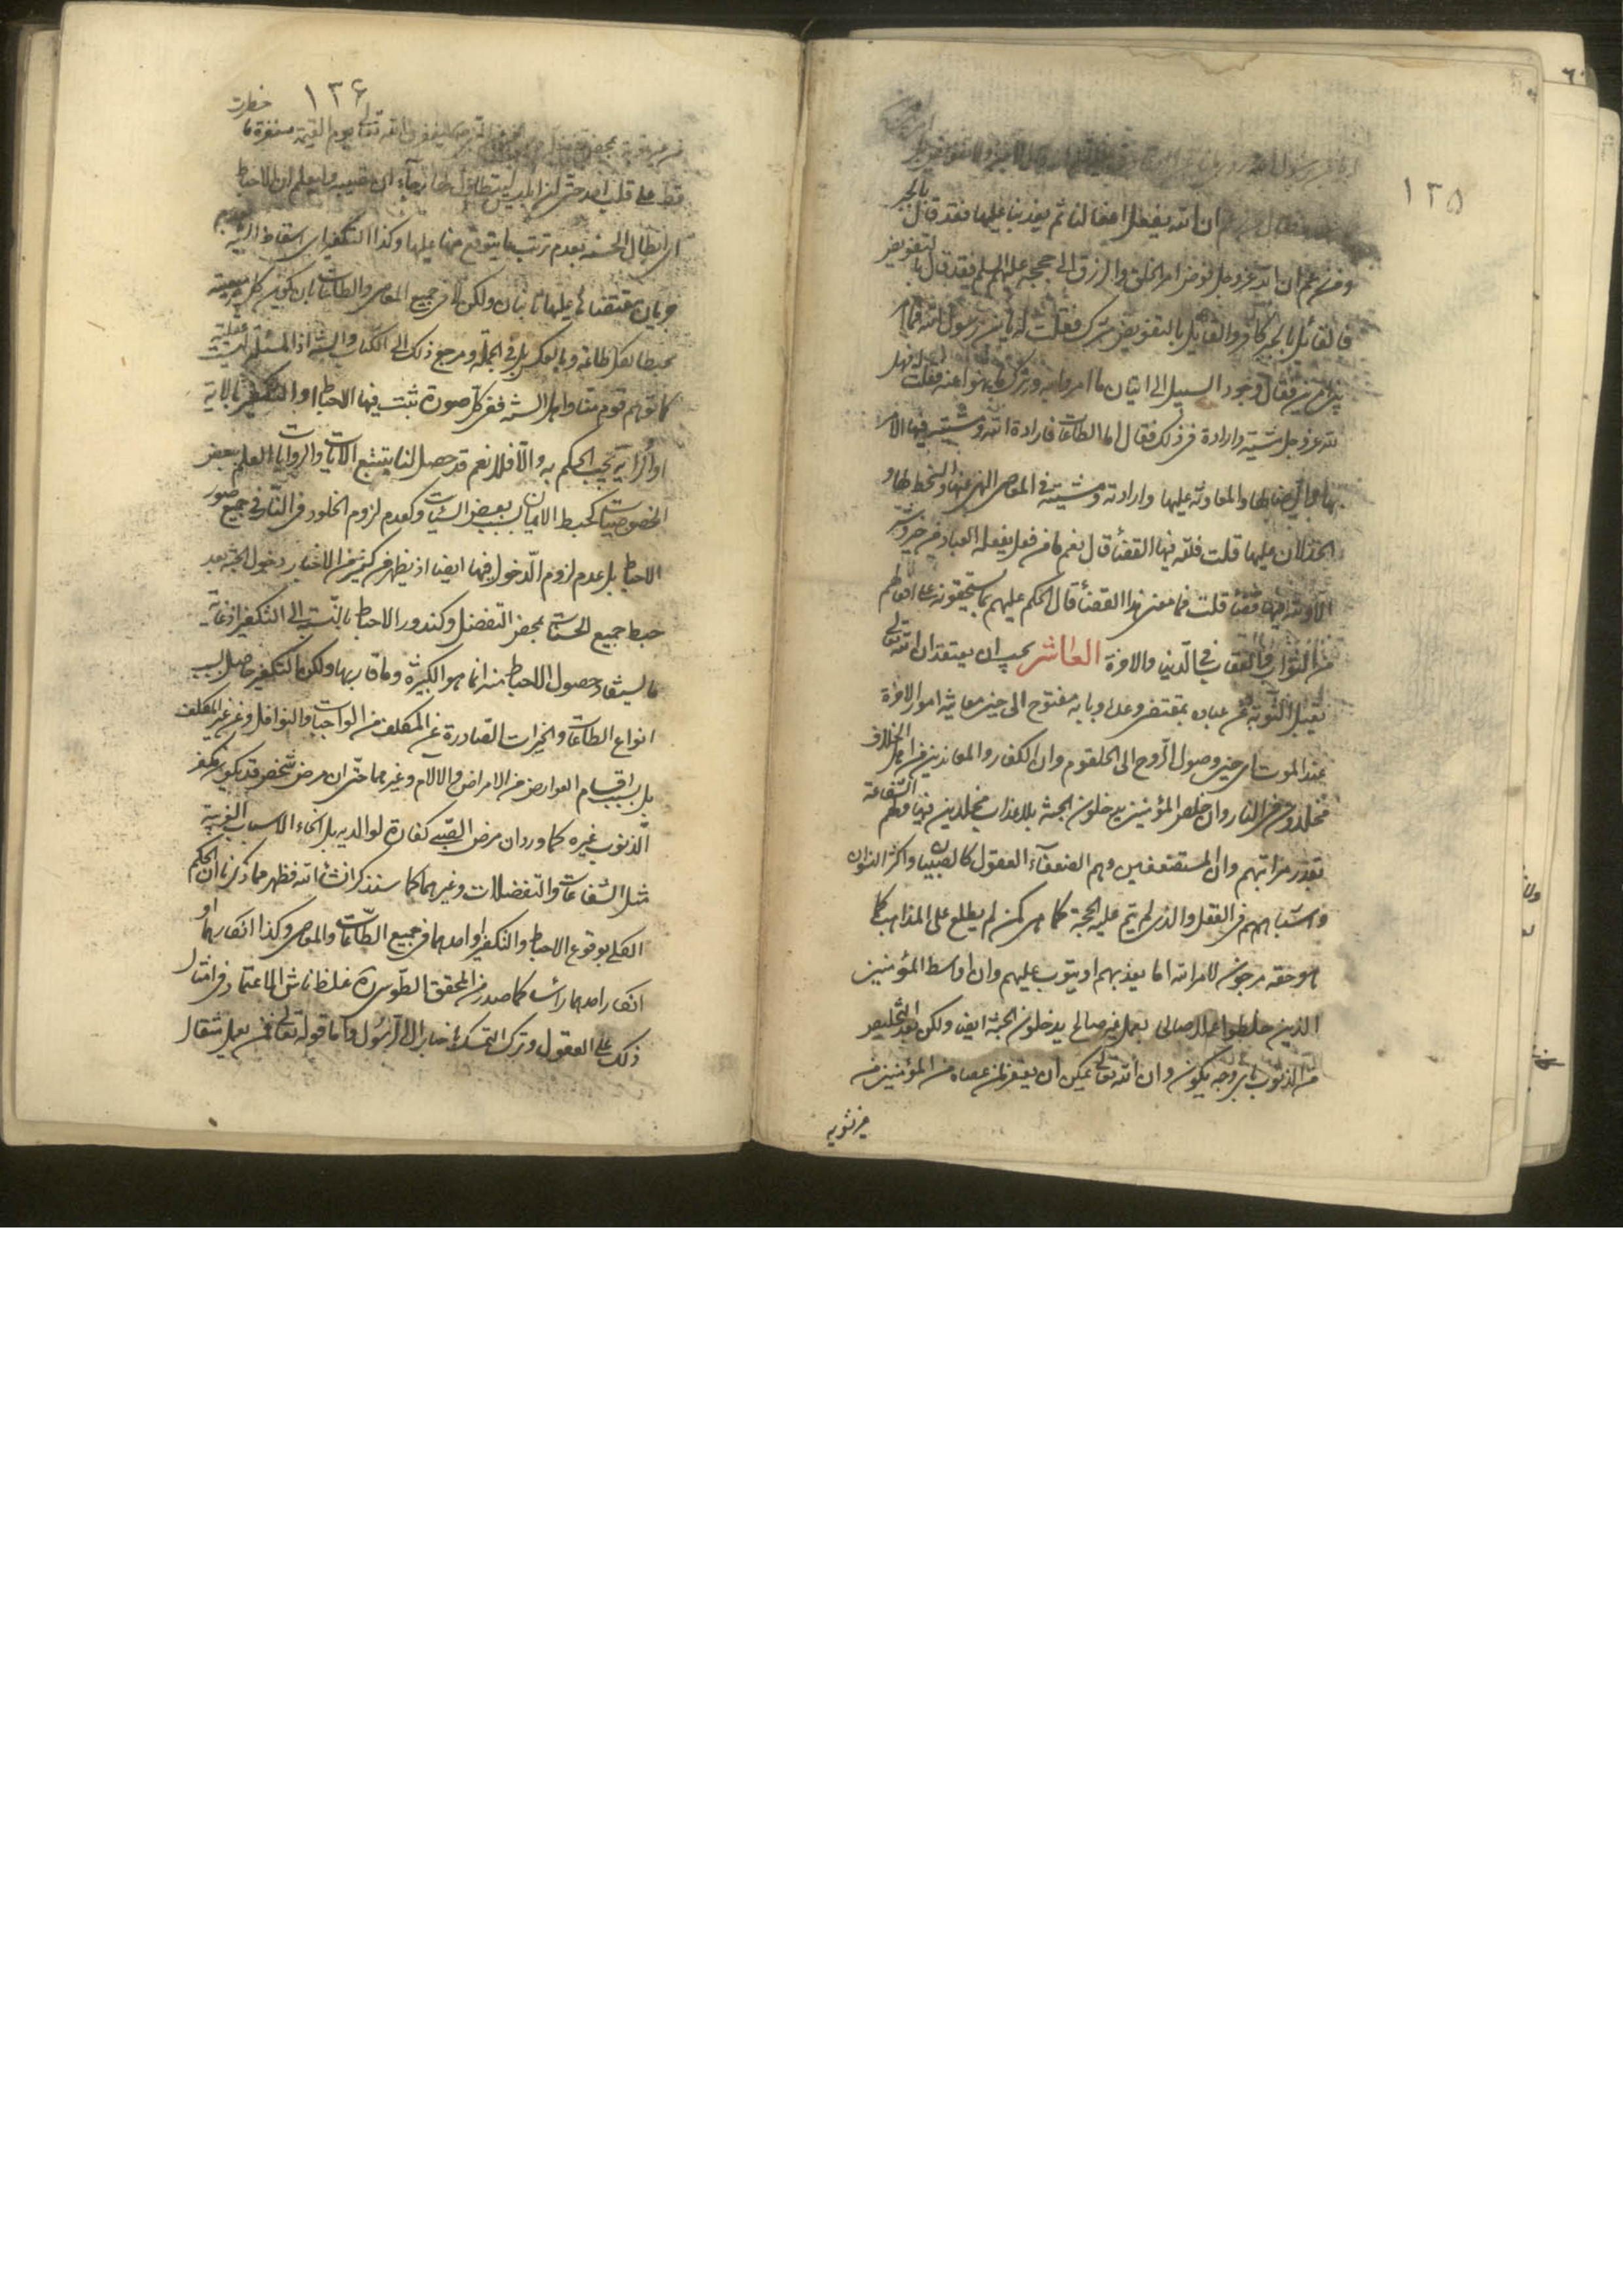 ١٣۵
ان الله يفعل افعالنا ثم يعذبنا عليها فقد قال بالجبر
ومن زعم ان الله عز وجل فوض امر الخلق والرزق الى حججه عليهم السلم فقد قال بالتفويض
فالقائل بالجبر كافر والقايل بالتفويض مشرك فقلت له يا بن رسول الله فما امر
بين امرين فقال وجود السبيل الى اتيان ما امروا به وترك ما نهوا عنه فقلت له فهل
لله عز وجل مشية وارادة في ذلك فقال اما الطاعات فارادة الله ومشيته فيها الامر
بها والرضا لها والمعاونة عليها وارادته ومشيته في المعاصي النهي عنها والسخط لها و
الخذلان عليها قلت فلله فيها القضاء قال نعم ما من فعل يفعله العباد من خير وشر
الا ولله فيها قضاء قلت فما معنى هذا القضاء قال الحكم عليهم بما يستحقونه على افعالهم
من الثواب والعقاب في الدنيا والاخرة العاشر يجب ان يعتقد ان الله تعالى
يقبل التوبة عن عباده بمقتضى وعده وبابه مفتوح الى حين معاينة امور الاخرة
عند الموت اى حين وصول الروح الى الحلقوم وان الكفار والمعاندين من اهل الخلاف
مخلدون في النار وان خلص المؤمنين يدخلون الجنة بلا عذاب مخلدين فيها ولهم الشفاعة
بقدر مراتبهم وان المستضعفين وهم الضعفاء العقول كالصبيان واكثر النسوان
واشباههم في العقل والذى لم يتم عليه الحجة كما هى كمن لم يطلع على المذاهب كما
هو حقه مرجون لامر الله اما يعذبهم او يتوب عليهم وان اواسط المؤمنين
الذين خلطوا عملا صالحا بعمل غير صالح يدخلون الجنة ايضا ولكن بعد التخليص
من الذنوب باى وجه يكون وان الله تعالى يمكن ان يغفر لمن عصاه من المؤمنين من
من توبة
١٣۶
من توبة بمحض يغفر الله تعالى يوم القيمة مغفرة ما خطرت
قط على قلب احد حتى ان ابليس يتطاول لها رجاء ان تصيبه وليعلم ان الاحباط
اى ابطال الحسنة بعدم ترتب ما يتوقع منها عليها وكذا التكفير اى اسقاط السيئة بعدم
جريان مقتضاها عليها ثابتان ولكن لا في جميع المعاصى والطاعات بان يكون كل معصية
محبطا لكل طاعة وبالعكس بل في الجملة ومرجع ذلك الى الكتاب والسنة اذ المسئلة ليست عقلية
كما توهم قوم منا واهل السنة ففي كل صورة ثبت فيها الاحباط او التكفير بالاية
او الرواية يجب الحكم به والا فلا نعم قد حصل لنا بتتبع الايات والروايات العلم ببعض
الخصوصيات كحبط الايمان بسبب بعض السيئات وكعدم لزوم الخلود في النار في جميع صور
الاحباط بل عدم لزوم الدخول فيها ايضا اذ يظهر من كثير من الاخبار دخول الجنة بعد
حبط جميع الحسنات بمحض التفضل وكندور الاحباط بالنسبة الى التكفير اذ غاية
ما يستفاد حصول الاحباط منه انما هو الكبيرة وما قاربها ولكن التكفير حاصل بسبب
انواع الطاعات والخيرات الصادرة عن المكلف من الواجبات والنوافل وعن غير المكلف
بل بسبب اقسام العوارض من الامراض والالام وغيرهما حتى ان مرض شخص قد يكون مكفر
الذنوب غيره كما ورد ان مرض الصبى كفارة لوالديه بل انحاء الاسباب الغريبة
مثل الشفاعات والتفضلات وغيرهما كما سنذكر ان شاء الله فظهر مما ذكرنا ان الحكم
الكلى بوقوع الاحباط والتكفير او احدهما في جميع الطاعات والمعاصى وكذا انكارهما او
انكار احدهما راسا كما صدر من المحقق الطوسى ره غلط ناش من الاعتماد في امثال
ذلك على العقول وترك التمسك باخبار ال الرسول واما قوله تعالى فمن يعمل مثقال